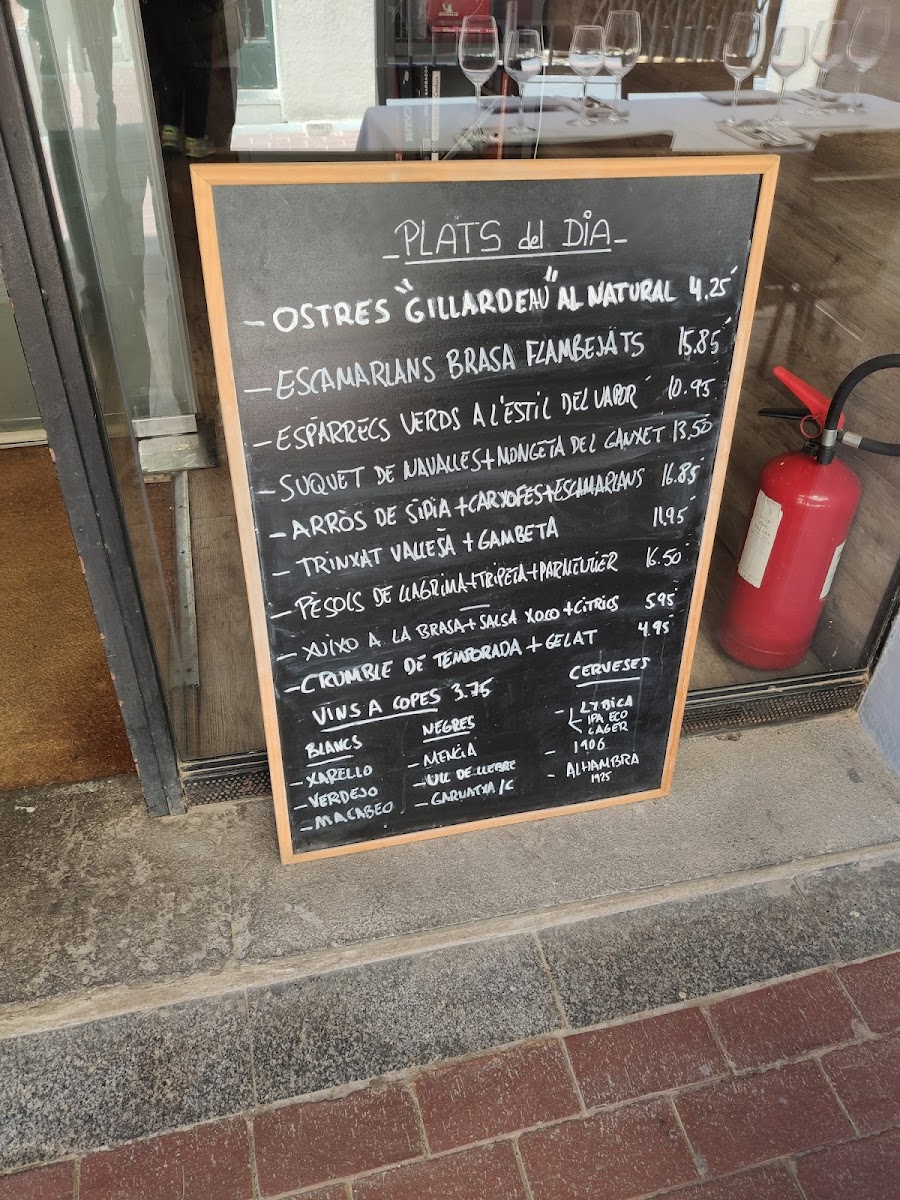 PLATS del DIA
- OSTRES "GILLARDEAU" AL NATURAL 4.25'
- ESCAMARLANS BRASA FLAMBEJATS 15.85'
- ESPÀRRECS VERDS A L'ESTIL DEL VAPOR 10.95
- SUQUET DE NAVALLES + MONGETA DEL GANXET 13,50
- ARRÒS DE SÍPIA + CARXOFES + ESCAMARLANS 16.85'
- TRINXAT VALLESÀ + GAMBETA 11.95'
- PÈSOLS DE LLAGRIMA + TRIPETA + PARMENTIER 16.50
- XUIXO A LA BRASA + SALSA XOCO + CÍTRICS 5.95
- CRUMBLE DE TEMPORADA + GELAT 4.95
VINS A COPES 3.75
BLANCS
- XARELLO
- VERDEJO
- MACABEO
NEGRES
- MENCIA
- ULL DE LLEBRE
- GARNATXA/C
CERVESES
- LYBICA
IPA ECO
LAGER
- 1906
- ALHAMBRA
1925